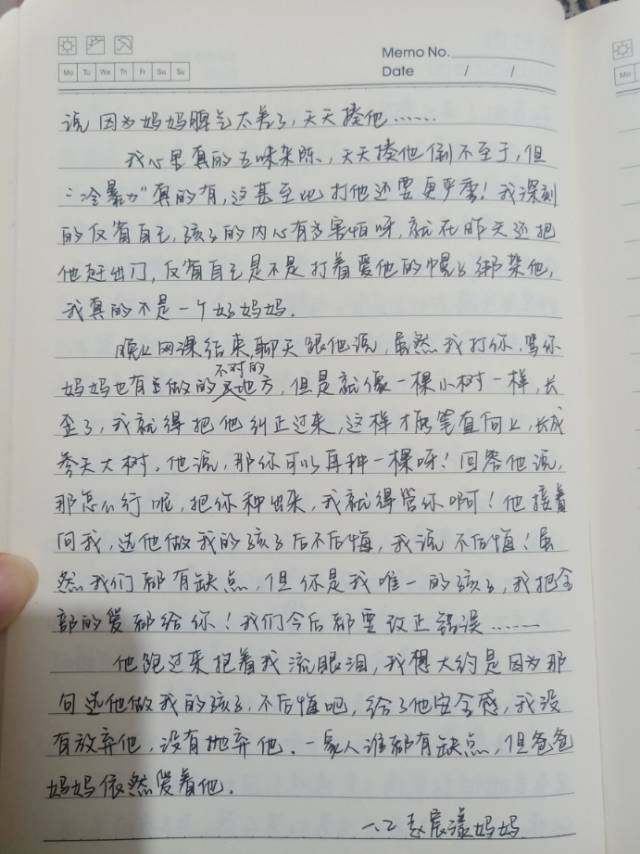 Memo No.
Mo Tu We Th Fr Sa Su
Date / /
说 因为妈妈脾气太差了，天天揍他……
我心里真的五味杂陈、天天揍他倒不至于，但
"冷暴力"真的有，这甚至比打他还要更严重！我深刻
的反省自己，孩子的内心有多害怕呀，就在昨天还把
他赶出门，反省自己是不是打着爱他的幌子绑架他，
我真的不是一个好妈妈．
晚上网课结束，聊天跟他说，虽然我打你，骂你
不对的
妈妈也有做的地方，但是就像一棵小树一样，长
歪了，我就得把他纠正过来，这样才能笔直向上，长成
参天大树．他说，那你可以再种一棵呀！回答他说，
那怎么行呢，把你种出来，我就得管你啊！他接着
问我，选他做我的孩子后不后悔，我说 不后悔！虽
然我们都有缺点，但你是我唯一的孩子，我把全
部的爱都给你！我们今后都要改正错误……
他跑过来抱着我流眼泪，我想大约是因为那
句选他做我的孩子，不后悔吧，给了他安全感，我没
有放弃他，没有抛弃他．一家人谁都有缺点，但爸爸
妈妈依然爱着他．
妈妈